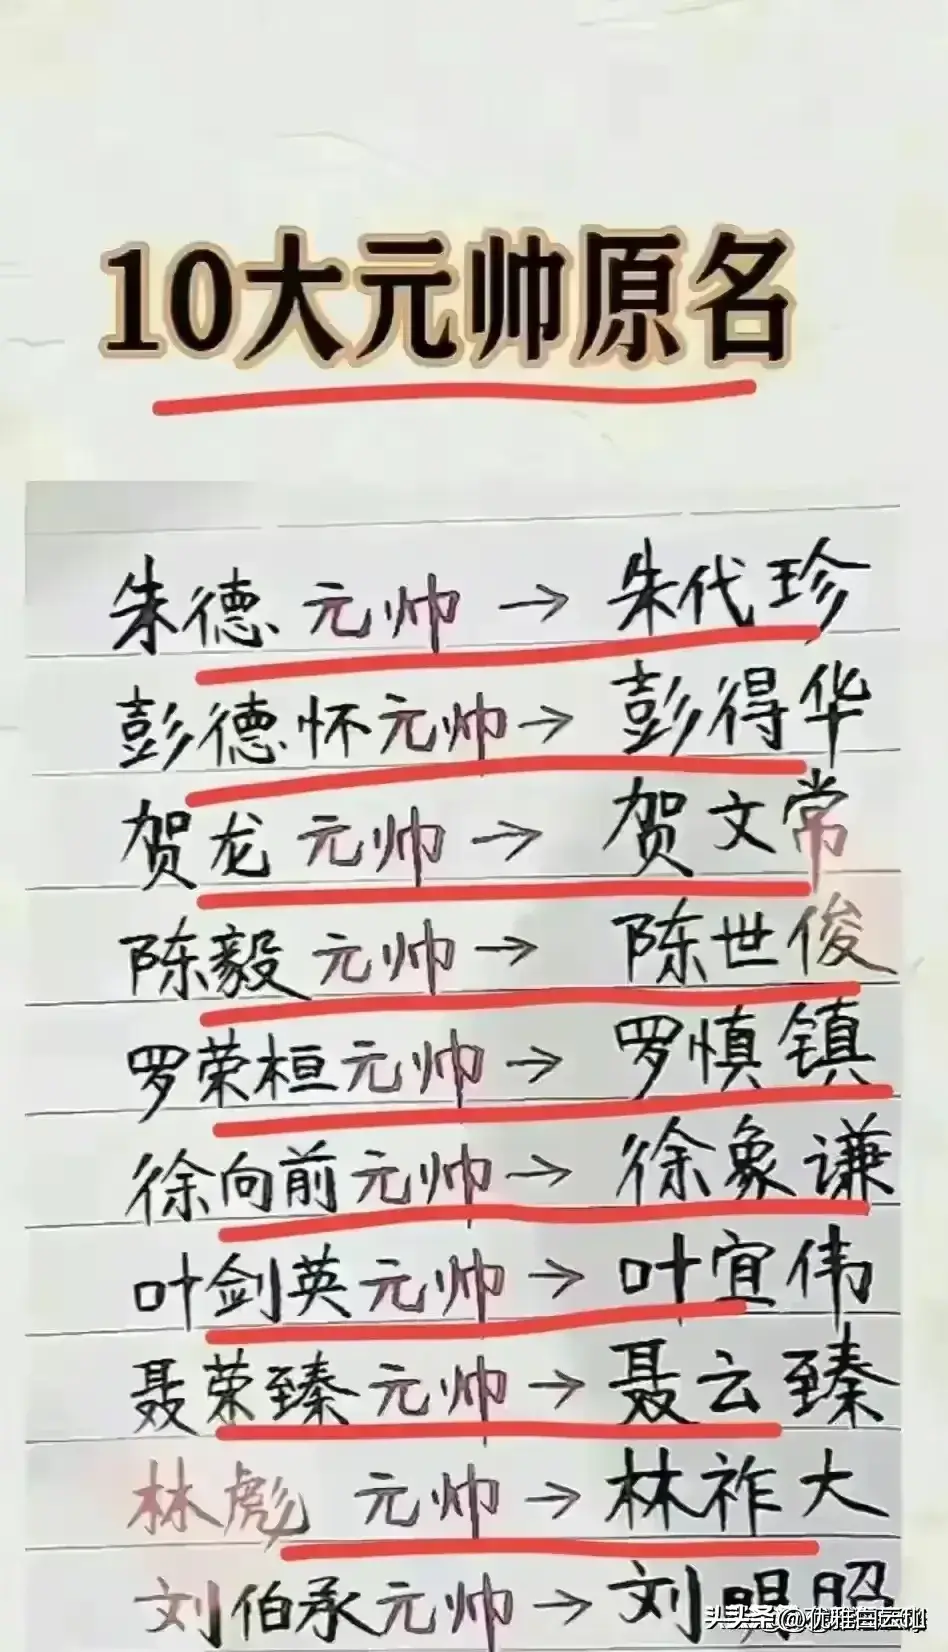 10大元帅原名
朱德元帅→朱代珍
彭德怀元帅→彭得华
贺龙元帅→贺文常
陈毅元帅→陈世俊
罗荣桓元帅→罗慎镇
徐向前元帅→徐象谦
叶剑英元帅→叶宜伟
聂荣臻元帅→聂云臻
林彪元帅→林祚大
刘伯承元帅→刘明昭
头条@优雅白云